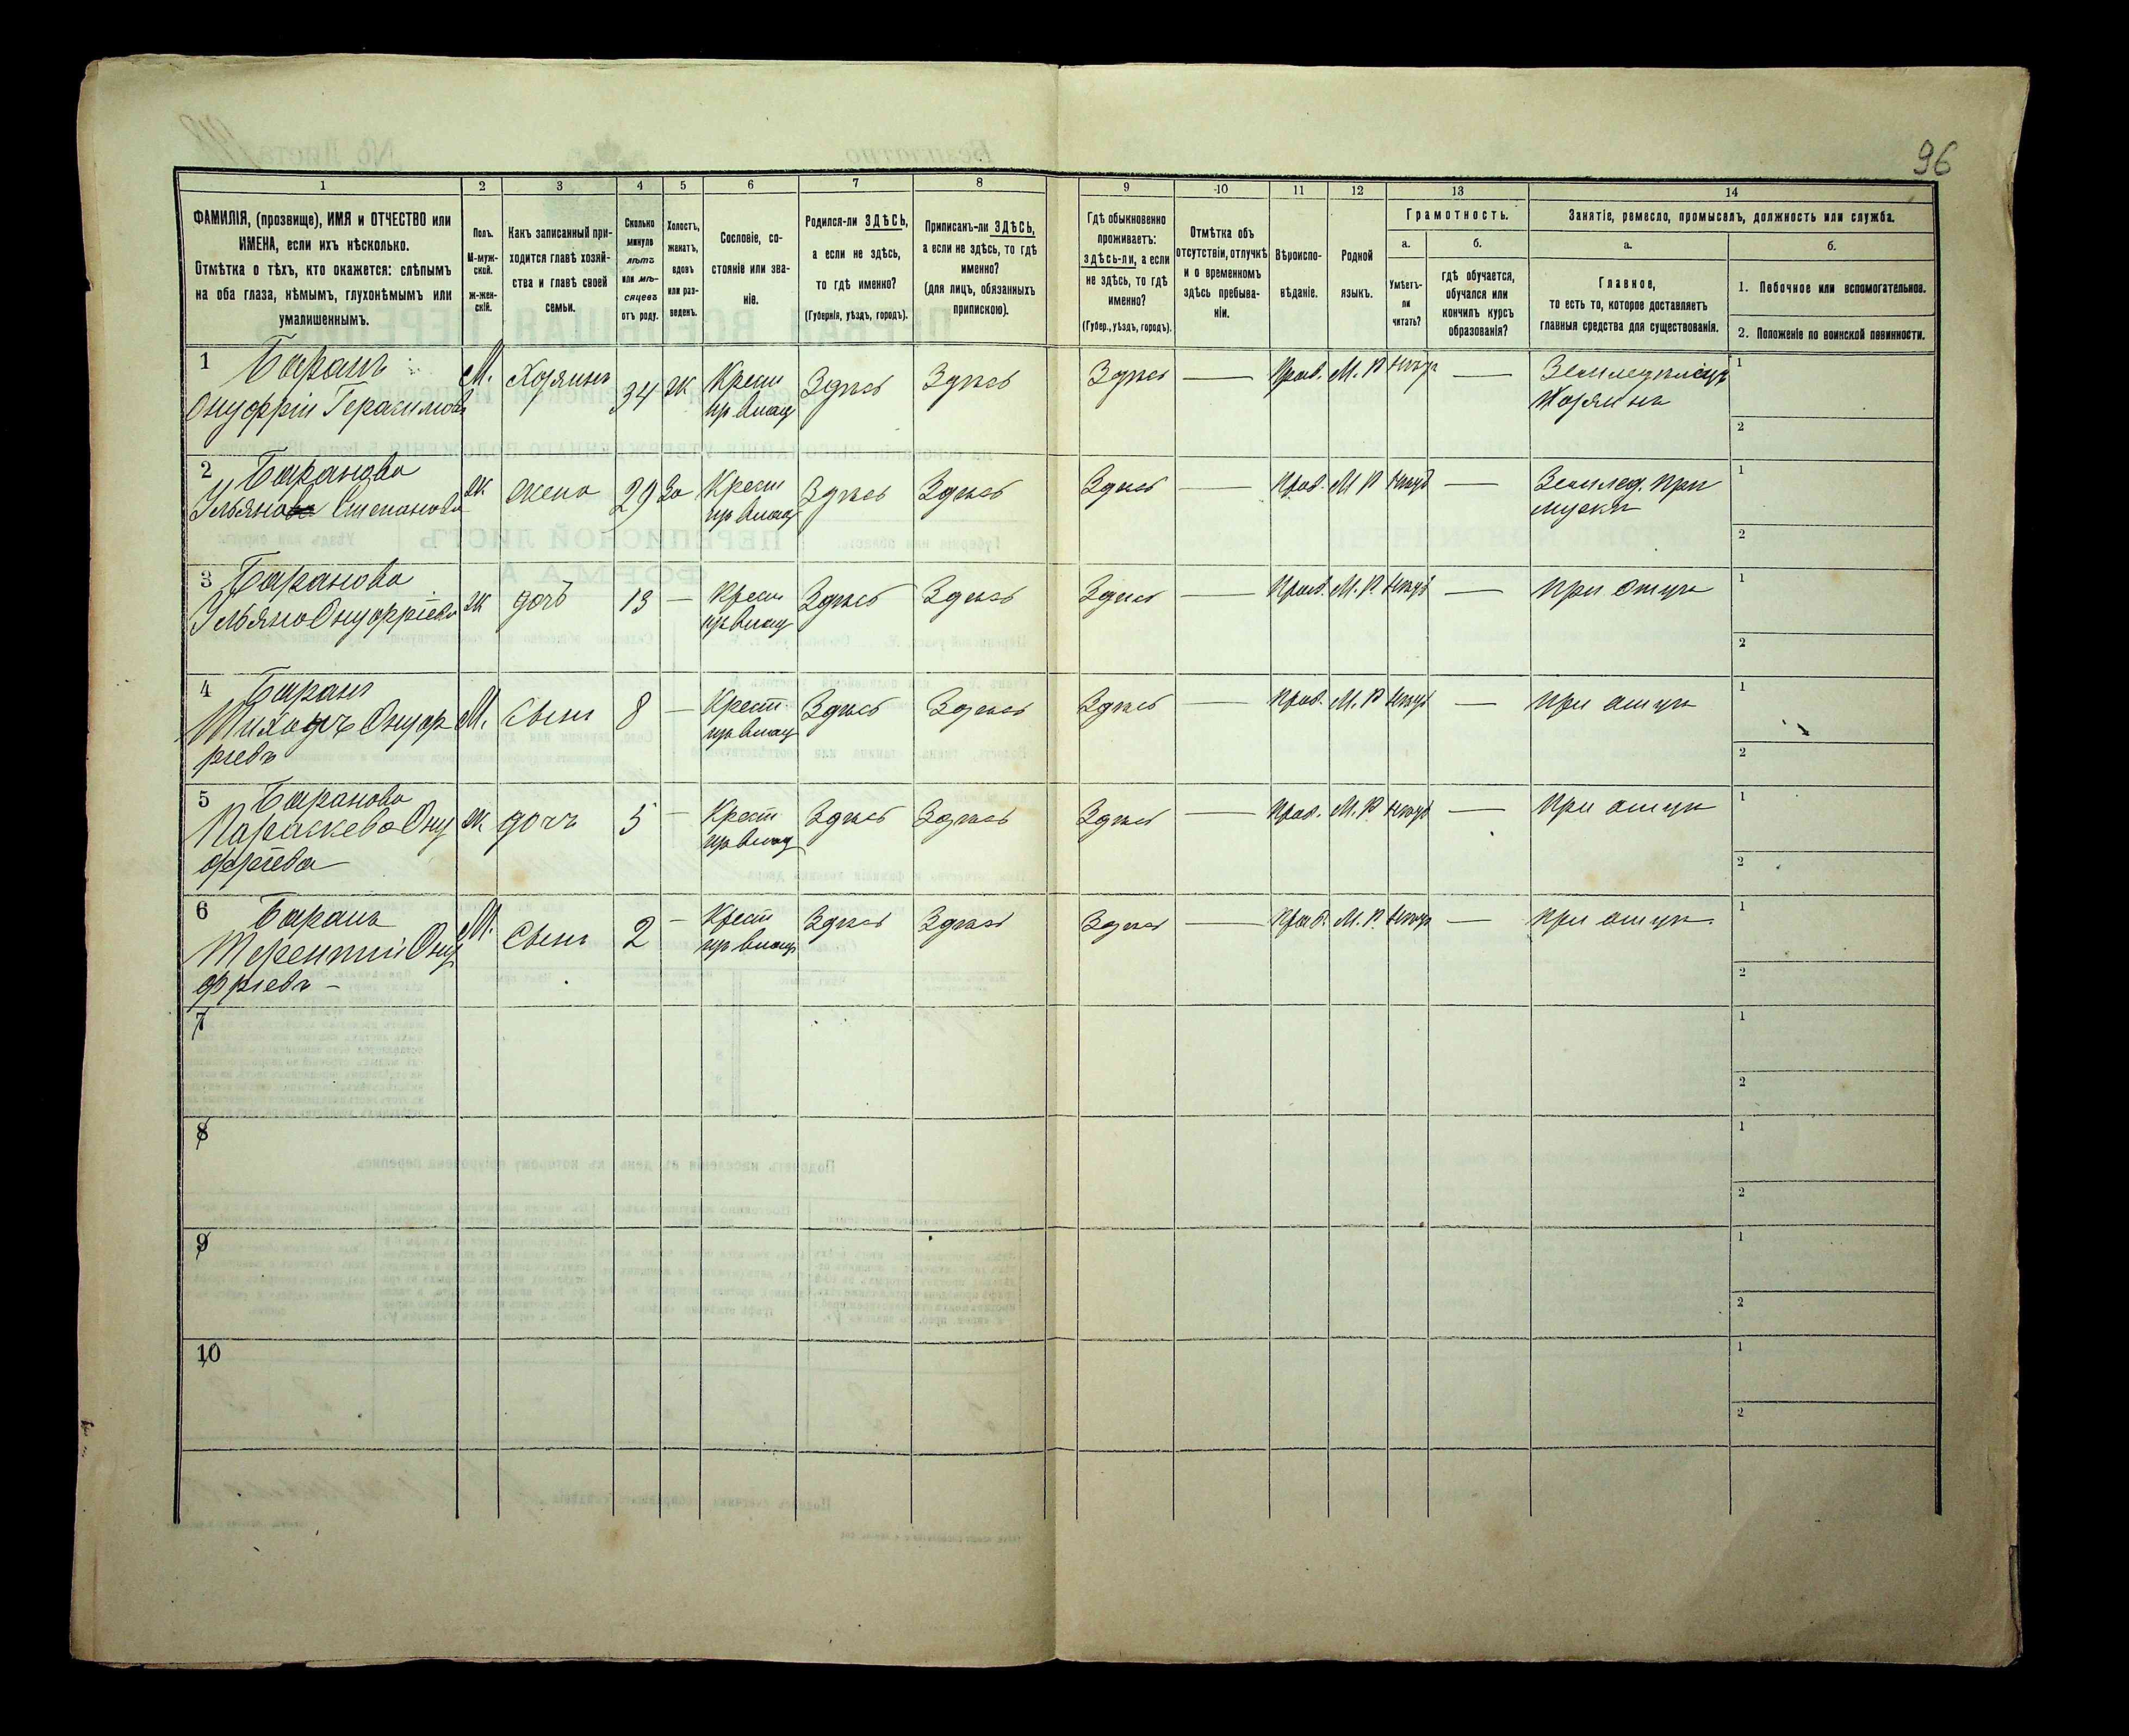 96
1 2 3 4 5 6 7 8 9 10 11 12 13 14
ФАМИЛІЯ, (прозвище), ИМЯ и ОТЧЕСТВО или
ИМЕНА, если ихъ нѣсколько.
Отмѣтка о тѣхъ, кто окажется: слѣпымъ
на оба глаза, нѣмымъ, глухонѣмымъ или
умалишеннымъ.
Полъ.
М-муж-
ской.
ж-жен-
скій.
Какъ записанный при-
ходится главѣ хозяй-
ства и главѣ своей
семьи.
Сколько
минуло
лѣтъ
или мѣ-
сяцевъ
отъ роду.
Холостъ,
женатъ,
вдовъ
или раз-
веденъ.
Сословіе, со-
стояніе или зва-
ніе.
Родился-ли ЗДѢСЬ,
а если не здѣсь,
то гдѣ именно?
(Губернія, уѣздъ, городъ).
Приписанъ-ли ЗДѢСЬ,
а если не здѣсь, то гдѣ
именно?
(для лицъ, обязанныхъ
припискою).
Гдѣ обыкновенно
проживаетъ:
здѣсь-ли, а если
не здѣсь, то гдѣ
именно?
(Губер., уѣздъ, городъ).
Отмѣтка объ
отсутствіи, отлучкѣ
и о временномъ
здѣсь пребыва-
ніи.
Вѣроиспо-
вѣданіе.
Родной
языкъ.
Грамотность.
а.
Умѣетъ-
ли
читать?
б.
гдѣ обучается,
обучался или
кончилъ курсъ
образованія?
Занятіе, ремесло, промыселъ, должность или служба.
а.
Главное,
то есть то, которое доставляетъ
главныя средства для существованія.
б.
1. Побочное или вспомогательное.
2. Положеніе по воинской повинности.
1 Баранъ М. Хозяинъ 34 Ж Крест Здѣсь Здѣсь Здѣсь — Прав. М. Р нѣтъ — Земледѣлецъ 1
Онуфрій Герасимовъ из влад Хозяинъ
2
2 Баранова ж жена 29 За Крест Здѣсь Здѣсь Здѣсь — Прав. М Р нѣтъ — Землед. при 1
Ульяна Степанова из влад мужѣ
2
3 Баранова ж дочь 13 — Крест Здѣсь Здѣсь Здѣсь — Прав. М. Р. нѣтъ — при отцѣ 1
Ульяна Онуфріева из влад
2
4 Баранъ М. Сынъ 8 — Крест Здѣсь Здѣсь Здѣсь — Прав. М. Р нѣтъ — при отцѣ 1
Онуф из влад
ріевъ 2
5 Баранова ж дочь 5 — Крест Здѣсь Здѣсь Здѣсь — Прав. М. Р нѣтъ — при отцѣ 1
Параскева Ону из влад
фріева 2
6 Баранъ М. Сынъ 2 — Крест Здѣсь Здѣсь Здѣсь — Прав. М. Р. нѣтъ — при отцѣ. 1
Терентій Ону из влад
фріевъ — 2
7 1
2
8 1
2
9 1
2
10 1
2